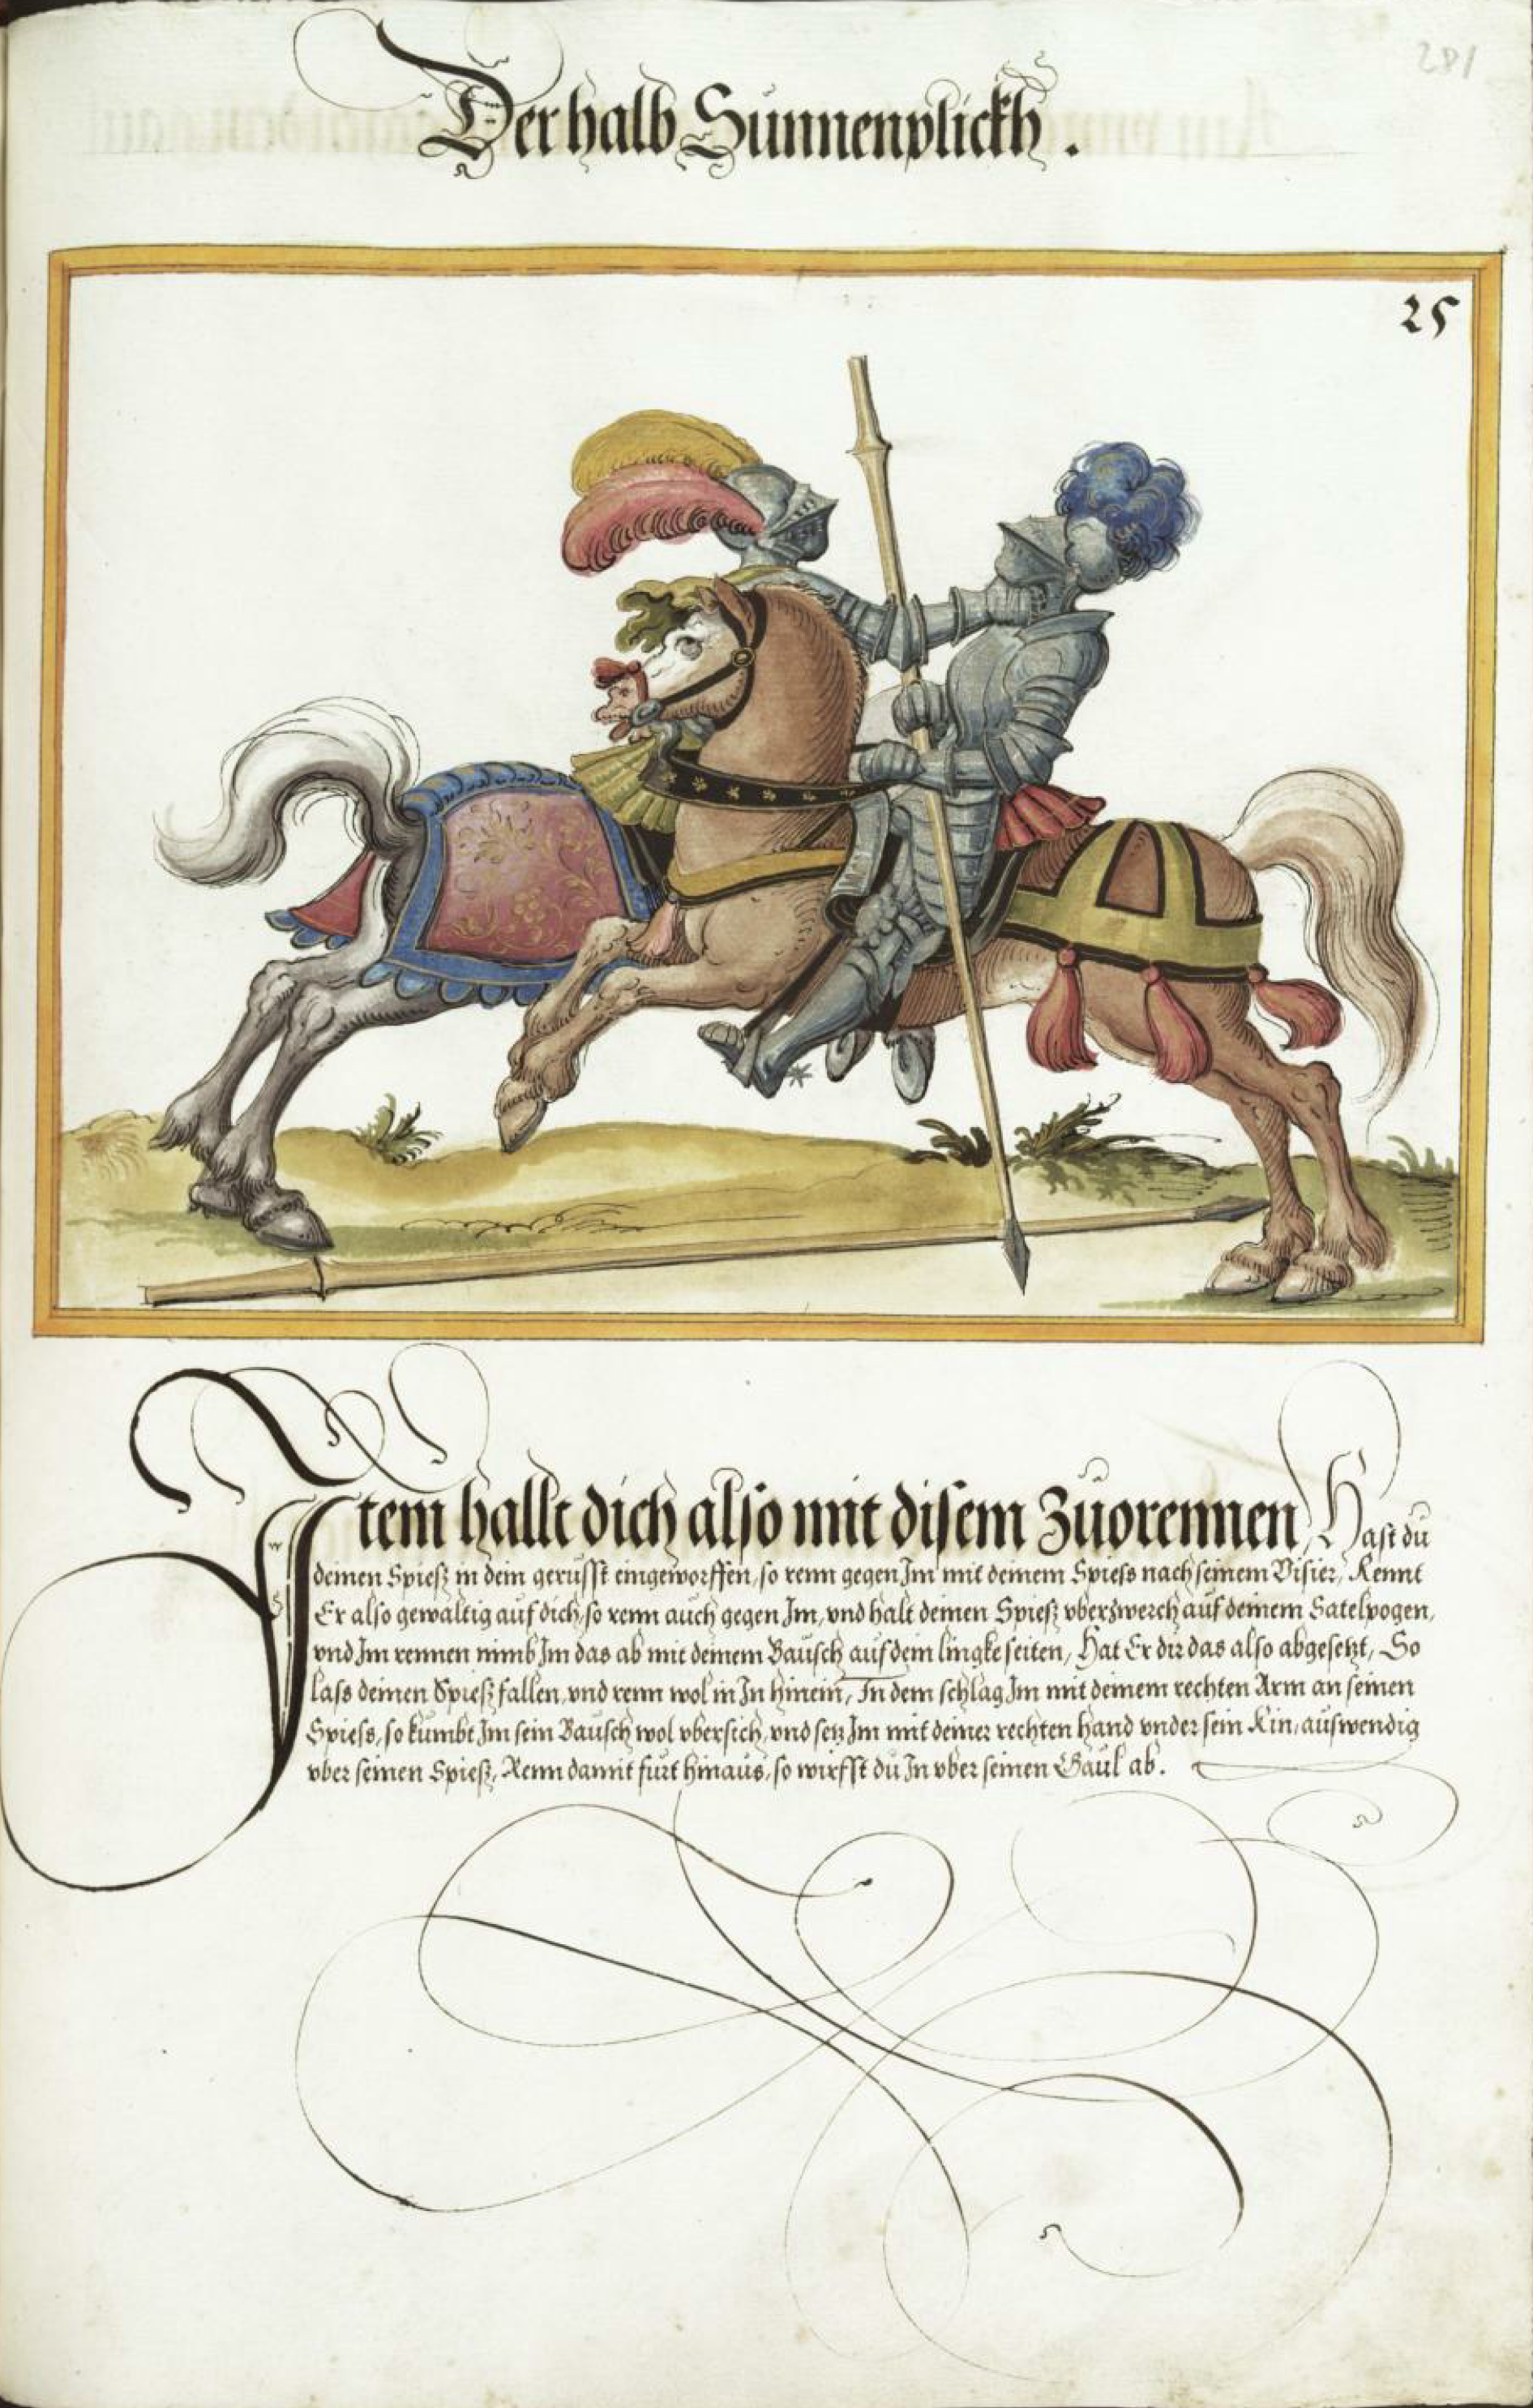 281
Der halb Sunnenplickh.
25
Item hallt dich also mit disem Zuorennen, Hast du
deinen Spieß in dein gerüsst eingeworffen, so renn gegen Im mit deinem Spiess nach seinem Visier, Rennt
Er also gewaltig auf dich, so renn auch gegen Im, vnd halt deinen Spieß vberzwerch auf deinem Satelpogen,
vnd Im rennen nimb Im das ab mit deinem Bausch auf dein lingke seiten, Hat Er dir das also abgesetzt, So
lass deinen Spieß fallen, vnd renn wol in In hinein, In dem schlag Im mit deinem rechten Arm an seinen
Spiess, so kumbt Im sein Bausch wol vbersich, vnd setz Im mit deiner rechten hand vnder sein Kin, auswendig
vber seinen Spieß, Renn damit furt hinaus, so wirfst du In vber seinen Gaul ab.